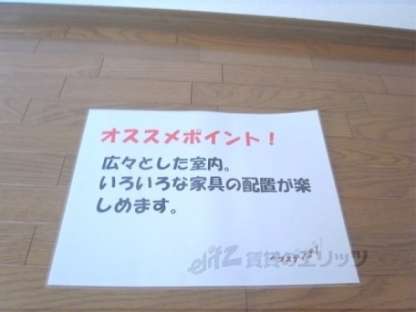 オススメポイント！
広々とした室内。
いろいろな家具の配置が楽
しめます。
elitz 賃貸のエリッツ